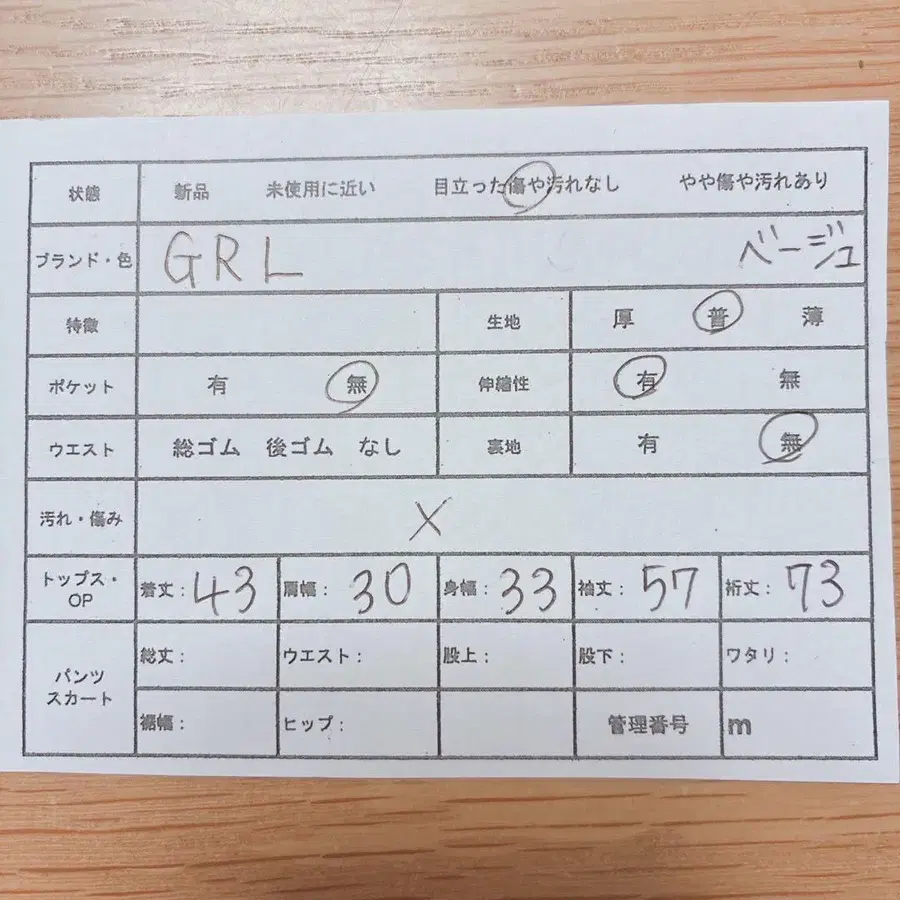 状態 新品 未使用に近い 目立った傷や汚れなし やや傷や汚れあり
ブランド・色 GRL ベージュ
特徴 生地 厚 普 薄
ポケット 有 無 伸縮性 有 無
ウエスト 総ゴム 後ゴム なし 裏地 有 無
汚れ・傷み X
トップス・OP 着丈：43 肩幅：30 身幅：33 袖丈：57 裄丈：73
パンツ
スカート
総丈： ウエスト： 股上： 股下： ワタリ：
裾幅： ヒップ： 管理番号 m